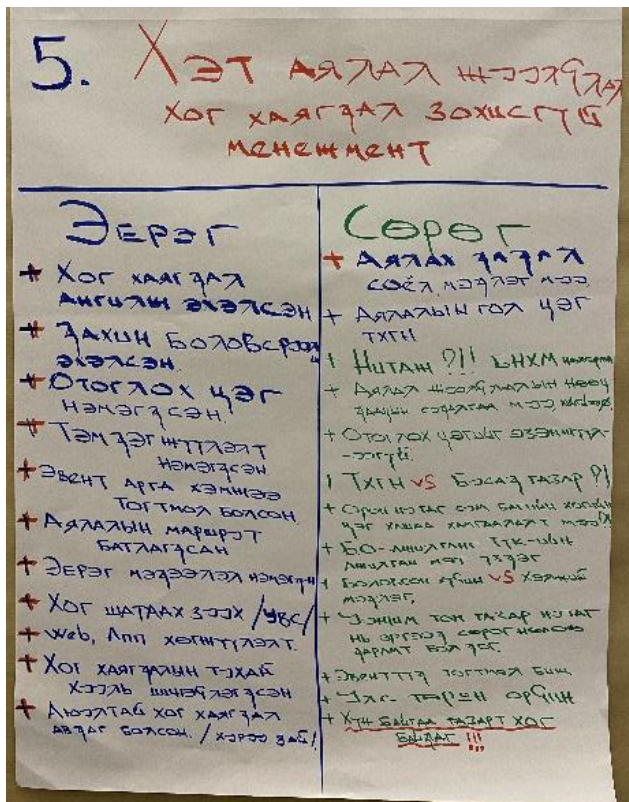 5. Хэт аялал жуулчлал
хог хаягдал зохисгүй
менежмент
Эерэг
+ Хог хаягдал
ангилж эхэлсэн
+ Дахин боловсруулж
эхэлсэн.
+ Отоглох цэг
нэмэгдсэн.
+ Тэмдэгжүүлэлт
нэмэгдсэн
+ Эвент арга хэмжээ
тогтмол болсон.
+ Аялалын маршрут
батлагдсан
+ Эерэг мэдээлэл нэмэгдсэн
+ Хог шатдах зуух /УВС/
+ Web, Апп хөгжүүлэлт.
+ Хог хаягдалын тухай
хууль шинэчлэгдсэн
+ Аюултай хог хаягдал
авдаг болсон. /хуроо зай/
Сөрөг
+ Аялах дадал
соёл, мэдлэг муу
+ Аялалын гол цэг
ТХГН
Нутаж ?!! БНХМ
+ Аялал жуулчлалын нөөц
даацын судалгаа муу
+ Отоглох цэгийг эзэмшүүл-
-ээгүй.
ТХГН vs Бусад газар ?!
+ Орон нутаг сум багийн хогийн
цэг хашаа хамгаалалт муу!!
+ БО-
үздэг
+ Боловсон хүчин vs Хэржий
мэдлэг,
+ Уужим том газар нутаг
нь эргээд сөрөг нөлөө
дарамт болдог.
+ Эвентүүд тогтмол биш
+ Улс төрийн орчин
+ Хүн байгаа газарт хог
байдаг !!!